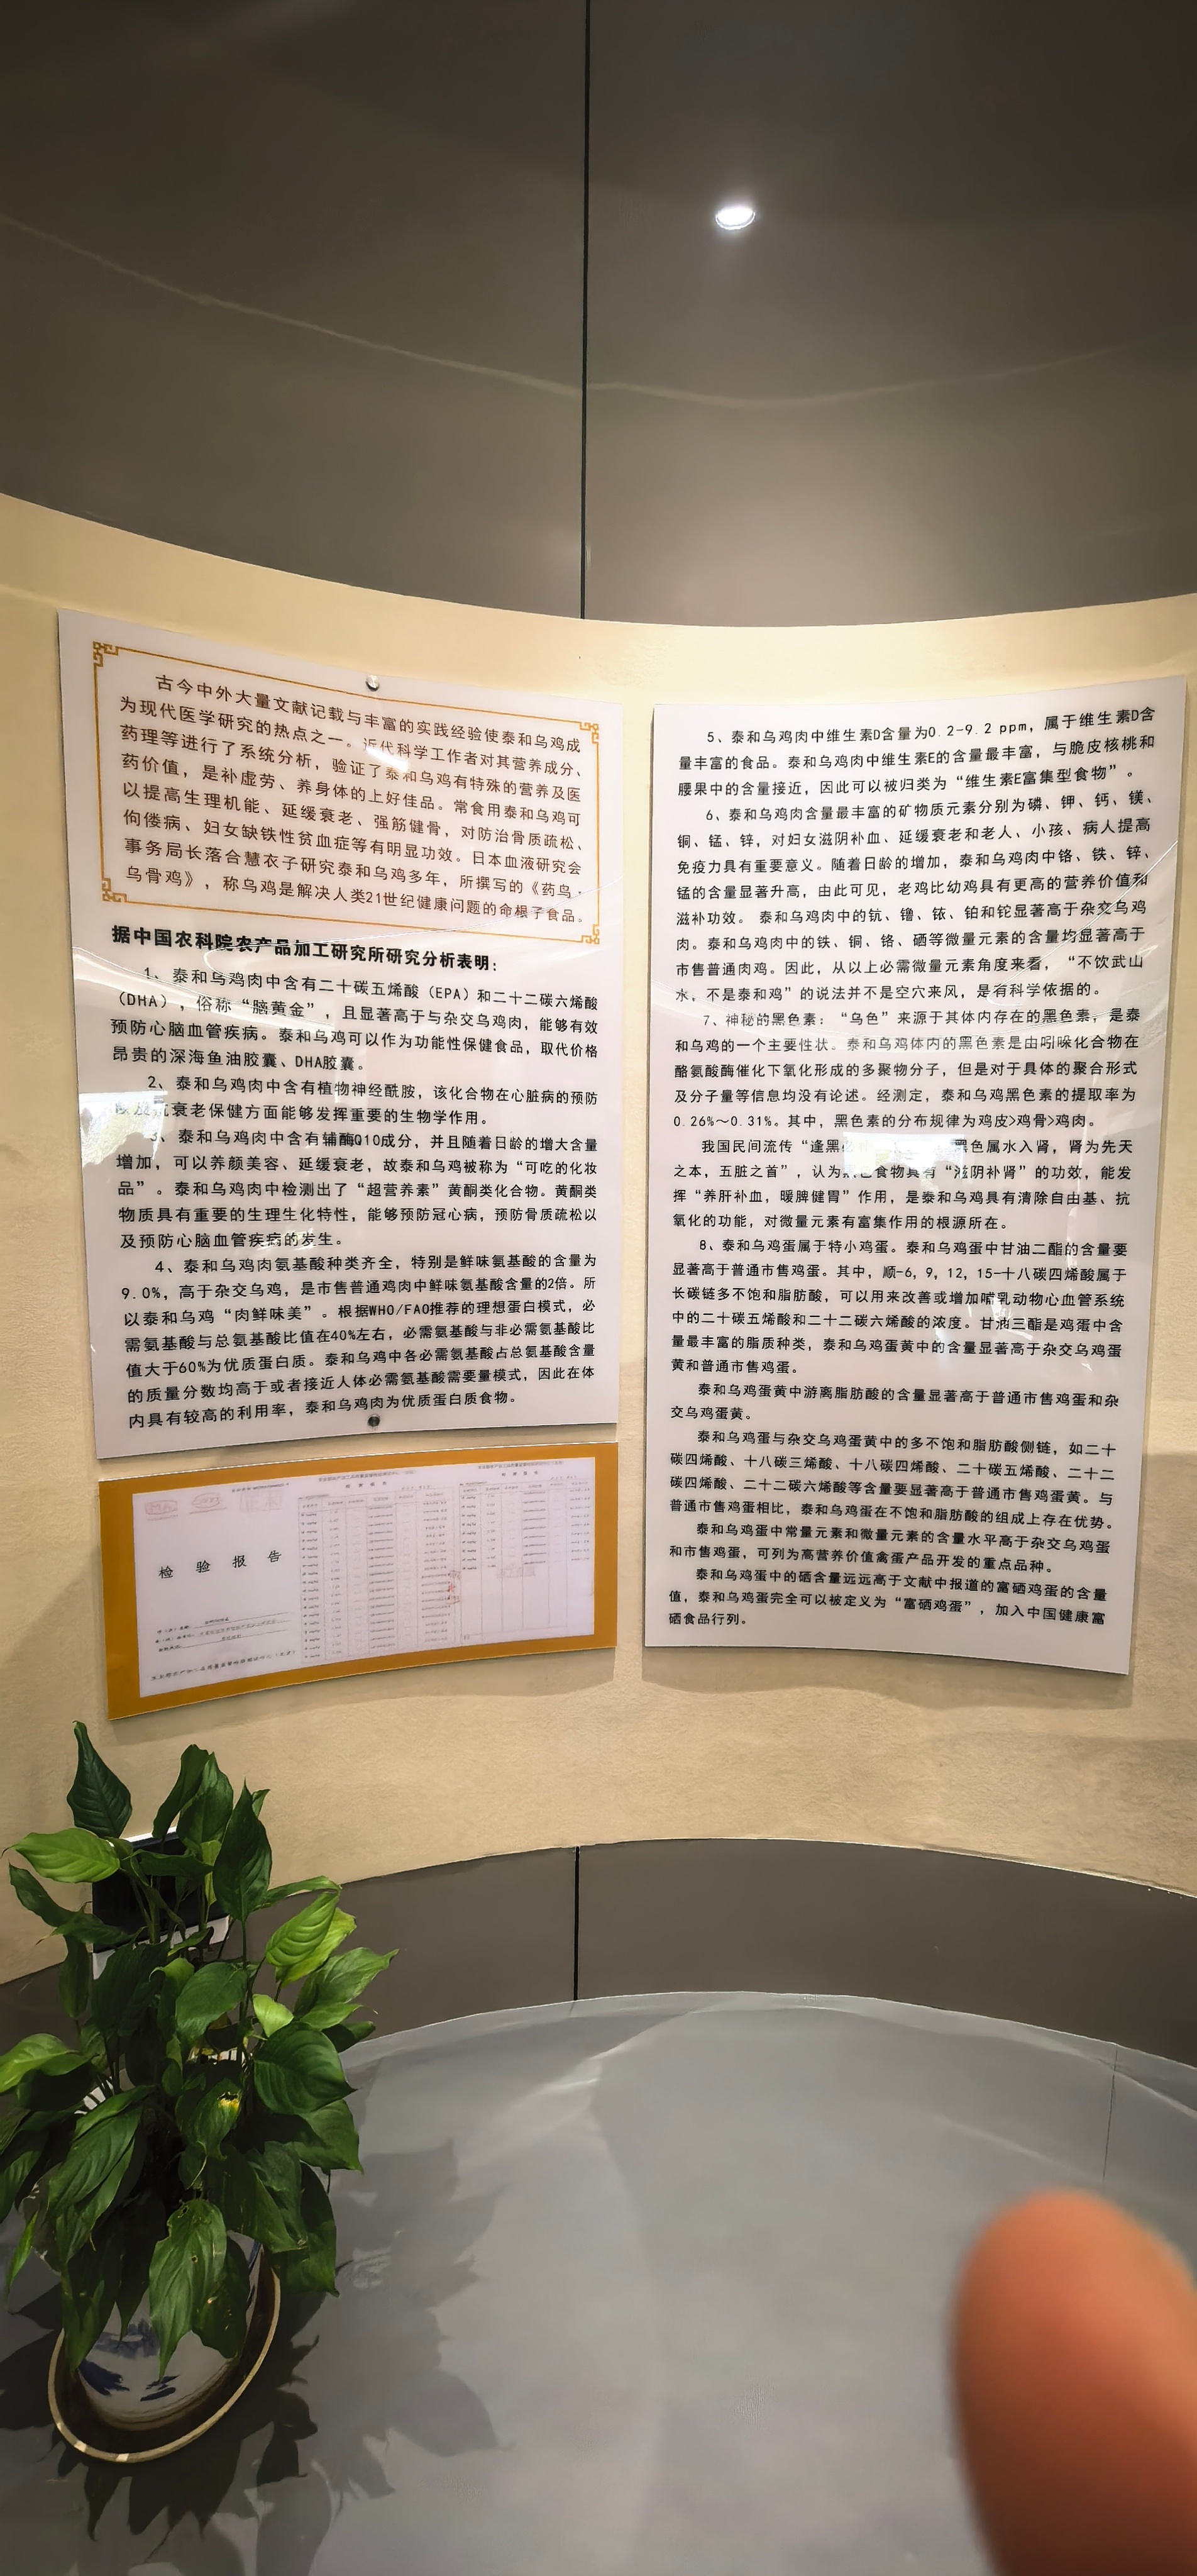 古今中外大量文献记载与丰富的实践经验使泰和乌鸡成
为现代医学研究的热点之一。近代科学工作者对其营养成分、
药理等进行了系统分析，验证了泰和乌鸡有特殊的营养及医
药价值，是补虚劳、养身体的上好佳品。常食用泰和乌鸡可
以提高生理机能、延缓衰老、强筋健骨，对防治骨质疏松、
佝偻病、妇女缺铁性贫血症等有明显功效。日本血液研究会
事务局长落合慧衣子研究泰和乌鸡多年，所撰写的《药鸟·
乌骨鸡》，称乌鸡是解决人类21世纪健康问题的命根子食品。
据中国农科院农产品加工研究所研究分析表明：
1、泰和乌鸡肉中含有二十碳五烯酸（EPA）和二十二碳六烯酸
（DHA），俗称“脑黄金”，且显著高于与杂交乌鸡肉，能够有效
预防心脑血管疾病。泰和乌鸡可以作为功能性保健食品，取代价格
昂贵的深海鱼油胶囊、DHA胶囊。
2、泰和乌鸡肉中含有植物神经酰胺，该化合物在心脏病的预防
以及抗衰老保健方面能够发挥重要的生物学作用。
3、泰和乌鸡肉中含有辅酶Q10成分，并且随着日龄的增大含量
增加，可以养颜美容、延缓衰老，故泰和乌鸡被称为“可吃的化妆
品”。泰和乌鸡肉中检测出了“超营养素”黄酮类化合物。黄酮类
物质具有重要的生理生化特性，能够预防冠心病，预防骨质疏松以
及预防心脑血管疾病的发生。
4、泰和乌鸡肉氨基酸种类齐全，特别是鲜味氨基酸的含量为
9.0%，高于杂交乌鸡，是市售普通鸡肉中鲜味氨基酸含量的2倍。所
以泰和乌鸡“肉鲜味美”。根据WHO/FAO推荐的理想蛋白模式，必
需氨基酸与总氨基酸比值在40%左右，必需氨基酸与非必需氨基酸比
值大于60%为优质蛋白质。泰和乌鸡中各必需氨基酸占总氨基酸含量
的质量分数均高于或者接近人体必需氨基酸需要量模式，因此在体
内具有较高的利用率，泰和乌鸡肉为优质蛋白质食物。
检验报告
5、泰和乌鸡肉中维生素D含量为0.2-9.2 ppm，属于维生素D含
量丰富的食品。泰和乌鸡肉中维生素E的含量最丰富，与脆皮核桃和
腰果中的含量接近，因此可以被归类为“维生素E富集型食物”。
6、泰和乌鸡肉含量最丰富的矿物质元素分别为磷、钾、钙、镁、
铜、锰、锌，对妇女滋阴补血、延缓衰老和老人、小孩、病人提高
免疫力具有重要意义。随着日龄的增加，泰和乌鸡肉中铬、铁、锌、
锰的含量显著升高，由此可见，老鸡比幼鸡具有更高的营养价值和
滋补功效。 泰和乌鸡肉中的钪、镥、铱、铂和铊显著高于杂交乌鸡
肉。泰和乌鸡肉中的铁、铜、铬、硒等微量元素的含量均显著高于
市售普通肉鸡。因此，从以上必需微量元素角度来看，“不饮武山
水，不是泰和鸡”的说法并不是空穴来风，是有科学依据的。
7、神秘的黑色素：“乌色”来源于其体内存在的黑色素，是泰
和乌鸡的一个主要性状。泰和乌鸡体内的黑色素是由吲哚化合物在
酪氨酸酶催化下氧化形成的多聚物分子，但是对于具体的聚合形式
及分子量等信息均没有论述。经测定，泰和乌鸡黑色素的提取率为
0.26%～0.31%。其中，黑色素的分布规律为鸡皮>鸡骨>鸡肉。
我国民间流传“逢黑 黑色属水入肾，肾为先天
之本，五脏之首”，认为 色食物具有“滋阴补肾”的功效，能发
挥“养肝补血，暖脾健胃”作用，是泰和乌鸡具有清除自由基、抗
氧化的功能，对微量元素有富集作用的根源所在。
8、泰和乌鸡蛋属于特小鸡蛋。泰和乌鸡蛋中甘油二酯的含量要
显著高于普通市售鸡蛋。其中，顺-6，9，12，15-十八碳四烯酸属于
长碳链多不饱和脂肪酸，可以用来改善或增加哺乳动物心血管系统
中的二十碳五烯酸和二十二碳六烯酸的浓度。甘油三酯是鸡蛋中含
量最丰富的脂质种类，泰和乌鸡蛋黄中的含量显著高于杂交乌鸡蛋
黄和普通市售鸡蛋。
泰和乌鸡蛋黄中游离脂肪酸的含量显著高于普通市售鸡蛋和杂
交乌鸡蛋黄。
泰和乌鸡蛋与杂交乌鸡蛋黄中的多不饱和脂肪酸侧链，如二十
碳四烯酸、十八碳三烯酸、十八碳四烯酸、二十碳五烯酸、二十二
碳四烯酸、二十二碳六烯酸等含量要显著高于普通市售鸡蛋黄。与
普通市售鸡蛋相比，泰和乌鸡蛋在不饱和脂肪酸的组成上存在优势。
泰和乌鸡蛋中常量元素和微量元素的含量水平高于杂交乌鸡蛋
和市售鸡蛋，可列为高营养价值禽蛋产品开发的重点品种。
泰和乌鸡蛋中的硒含量远远高于文献中报道的富硒鸡蛋的含量
值，泰和乌鸡蛋完全可以被定义为“富硒鸡蛋”，加入中国健康富
硒食品行列。